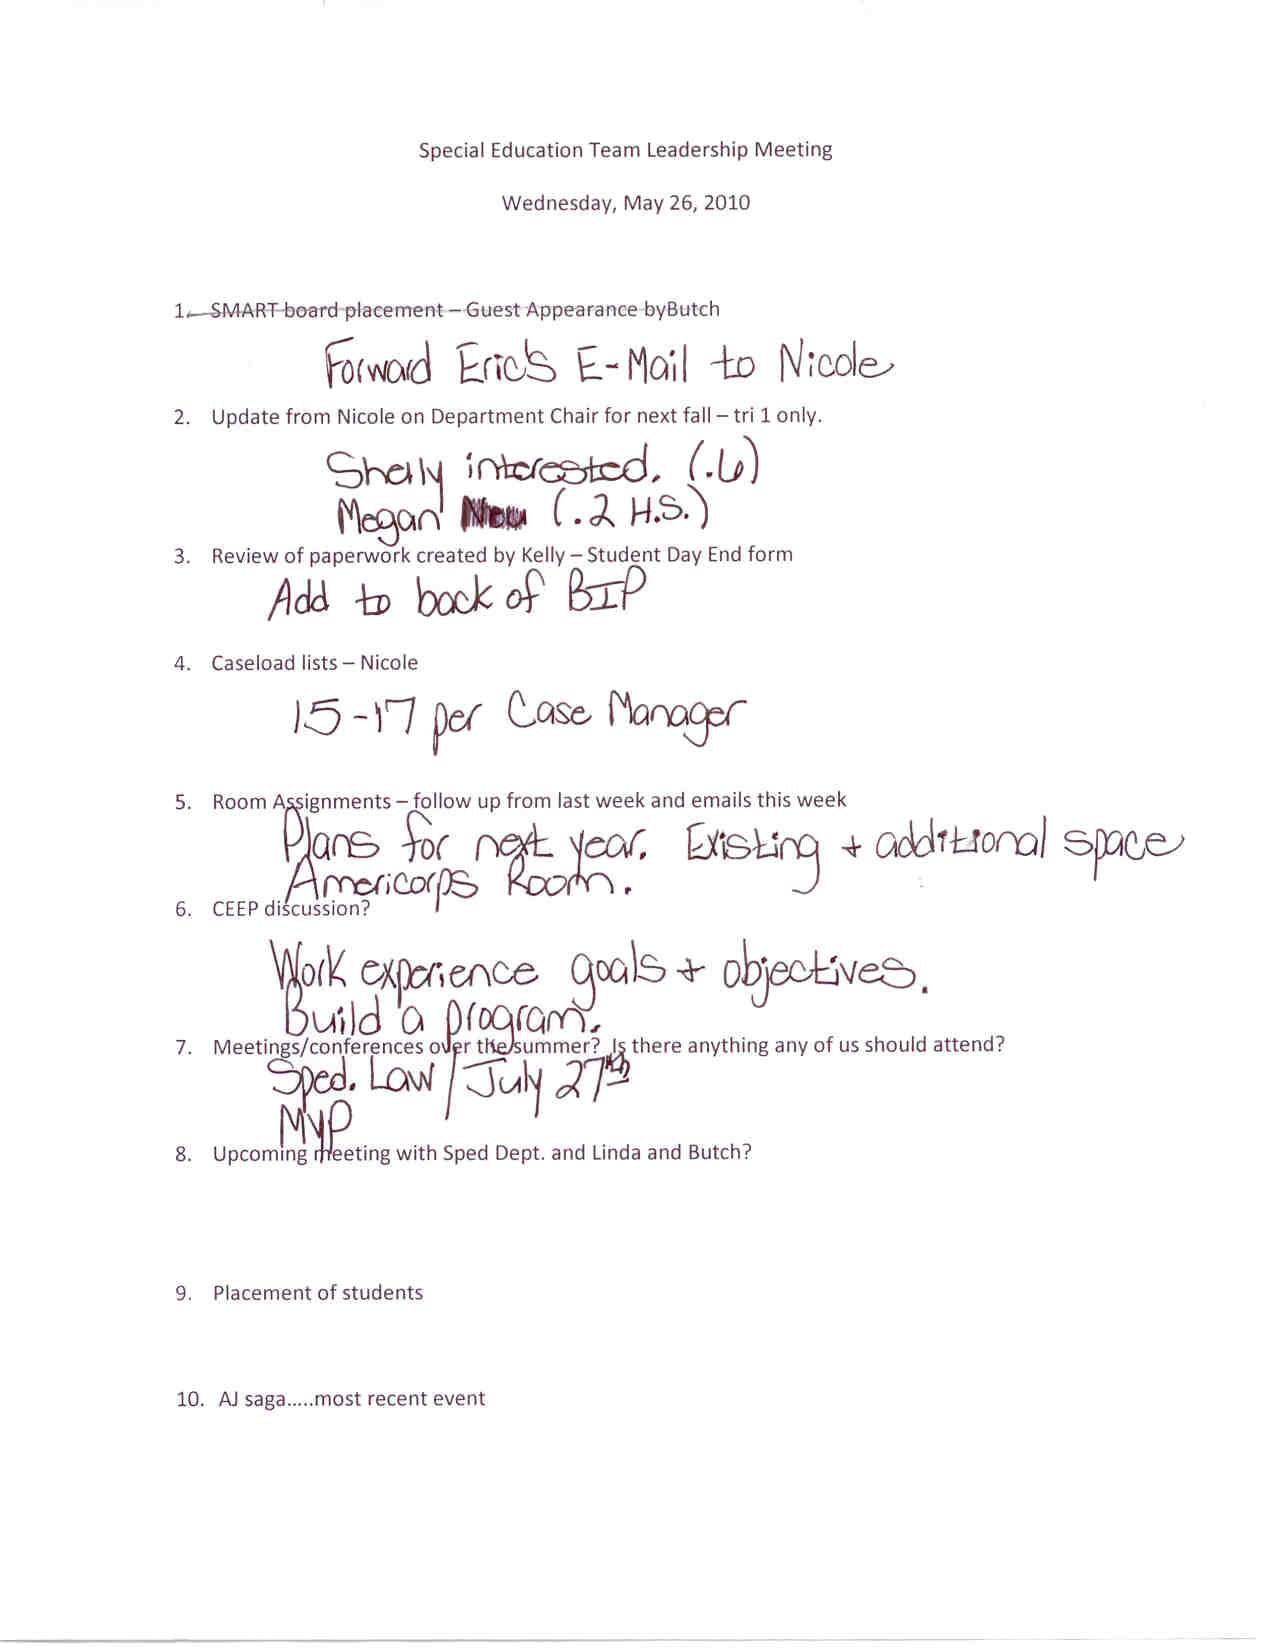 Special Education Team Leadership Meeting
Wednesday, May 26, 2010
1. SMART board placement – Guest Appearance byButch
Forward Eric's E-Mail to Nicole
2. Update from Nicole on Department Chair for next fall – tri 1 only.
Shelly interested. (.6)
Megan (.2 H.S.)
3. Review of paperwork created by Kelly – Student Day End form
Add to back of BIP
4. Caseload lists – Nicole
15-17 per Case Manager
5. Room Assignments – follow up from last week and emails this week
Plans for next year. Existing + additional space
Americorps Room.
6. CEEP discussion?
Work experience goals + objectives.
Build a program.
7. Meetings/conferences over the summer? Is there anything any of us should attend?
Sped. Law / July 27th
MVP
8. Upcoming meeting with Sped Dept. and Linda and Butch?
9. Placement of students
10. AJ saga.....most recent event